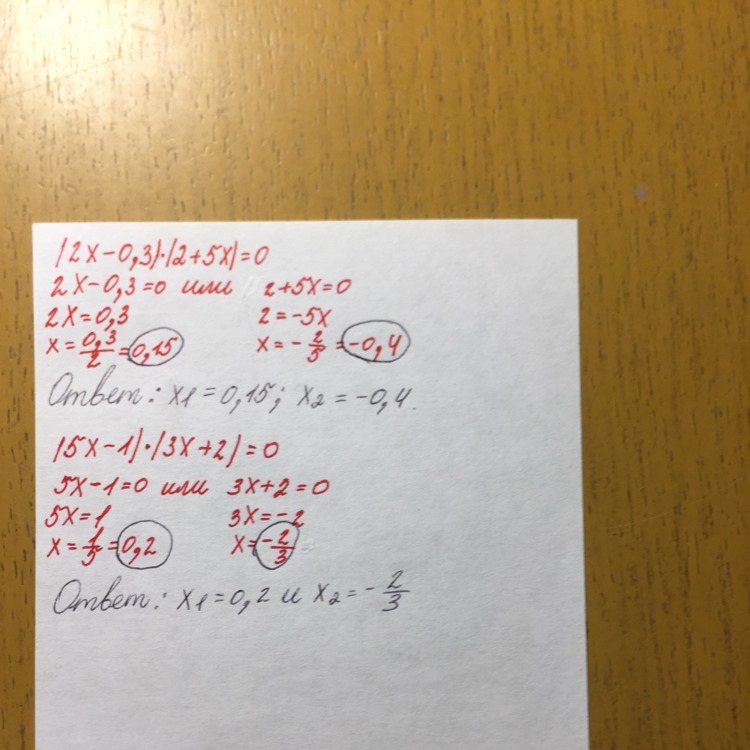 (2x-0,3)·(2+5x)=0
2x-0,3=0 или 2+5x=0
2x=0,3 2=-5x
x=0,3/2=0,15 x=-2/5=-0,4
Ответ: x1=0,15; x2=-0,4.
(5x-1)·(3x+2)=0
5x-1=0 или 3x+2=0
5x=1 3x=-2
x=1/5=0,2 x=-2/3
Ответ: x1=0,2 и x2=-2/3